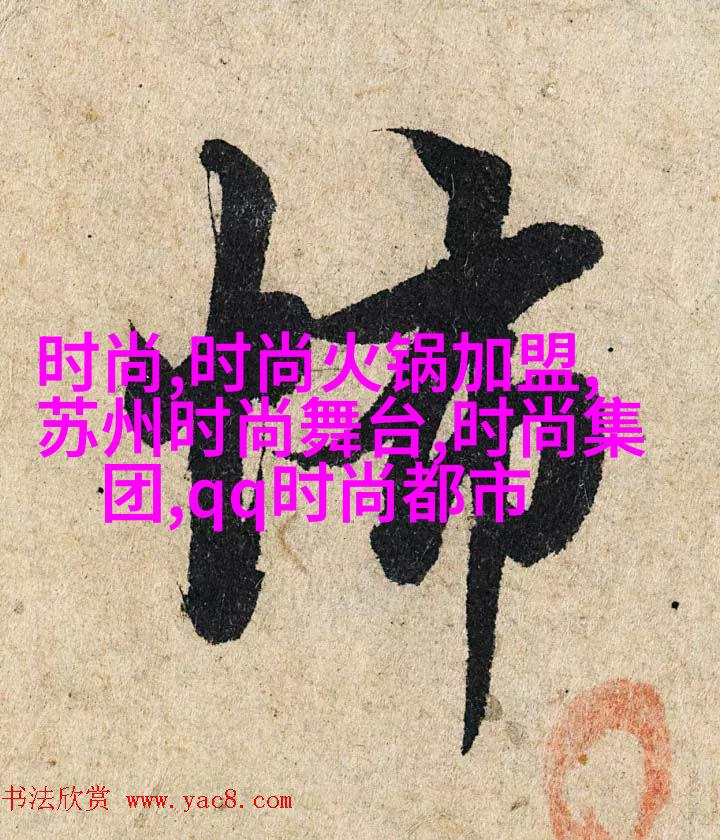 怖
时尚,时尚火锅加盟,
苏州时尚舞台,时尚集
团,qq时尚都市
书法欣赏 www.yac8.com